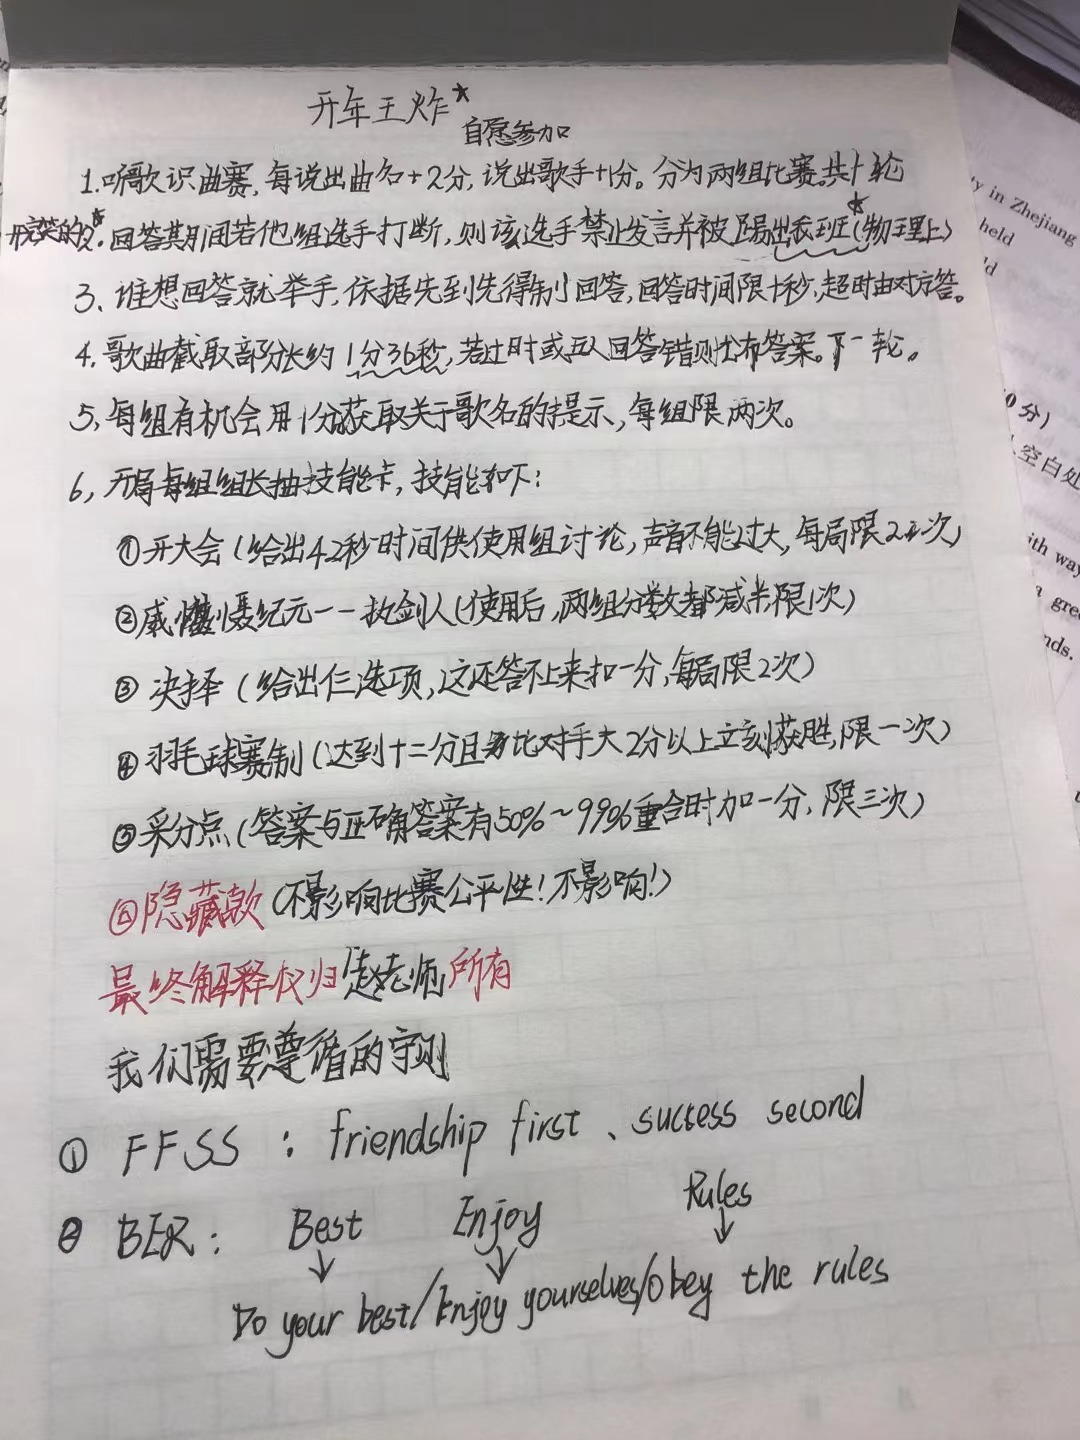 开年王炸★
自愿参加
1.听歌识曲赛,每说出曲名+2分,说出歌手+1分。分为两组比赛。共十轮
开完笑的★
2.回答期间若他组选手打断,则该选手禁止发言并被踢出我班★(物理上)
3、谁想回答就举手,依据先到先得制回答,回答时间限十秒,超时由对方答。
4.歌曲截取部分长约1分36秒,若过时或五人回答错则公布答案。下一轮。
5,每组有机会用1分获取关于歌名的提示,每组限两次。
6,开局每组组长抽技能卡,技能如下:
①开大会(给出42秒时间供使用组讨论,声音不能过大,每局限2次)
②威慑纪元——执剑人(使用后,两组分数都减半,限1次)
③决择(给出仨选项,这还答不上来扣一分,每局限2次)
④羽毛球赛制(达到十二分且比对手大2分以上立刻获胜,限一次)
⑤采分点(答案与正确答案有50%~99%重合时加一分,限三次)
⑥隐藏款(不影响比赛公平性!不影响!)
最终解释权归赵老师所有
我们需要尊循的守则
① FFSS:friendship first、success second
② BER: Best Enjoy Rules
Do your best/Enjoy yourselves/Obey the rules
ty in Zhejiang
held
ld
0分)
空白处
ith way
a gre
nds.